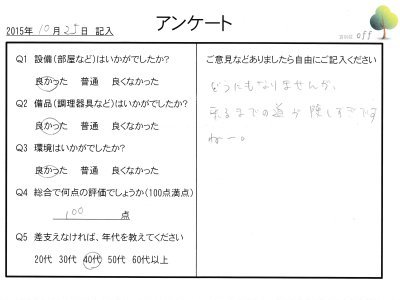 アンケート
2015年 10月 25日 記入
off
Q1 設備(部屋など)はいかがでしたか?
良かった 普通 良くなかった
Q2 備品(調理器具など)はいかがでしたか?
良かった 普通 良くなかった
Q3 環境はいかがでしたか?
良かった 普通 良くなかった
Q4 総合で何点の評価でしょうか(100点満点)
100 点
Q5 差支えなければ、年代を教えてください
20代 30代 40代 50代 60代以上
ご意見などありましたら自由にご記入ください
どうにもなりませんが、
来るまでの道が険しすぎです
ねー。